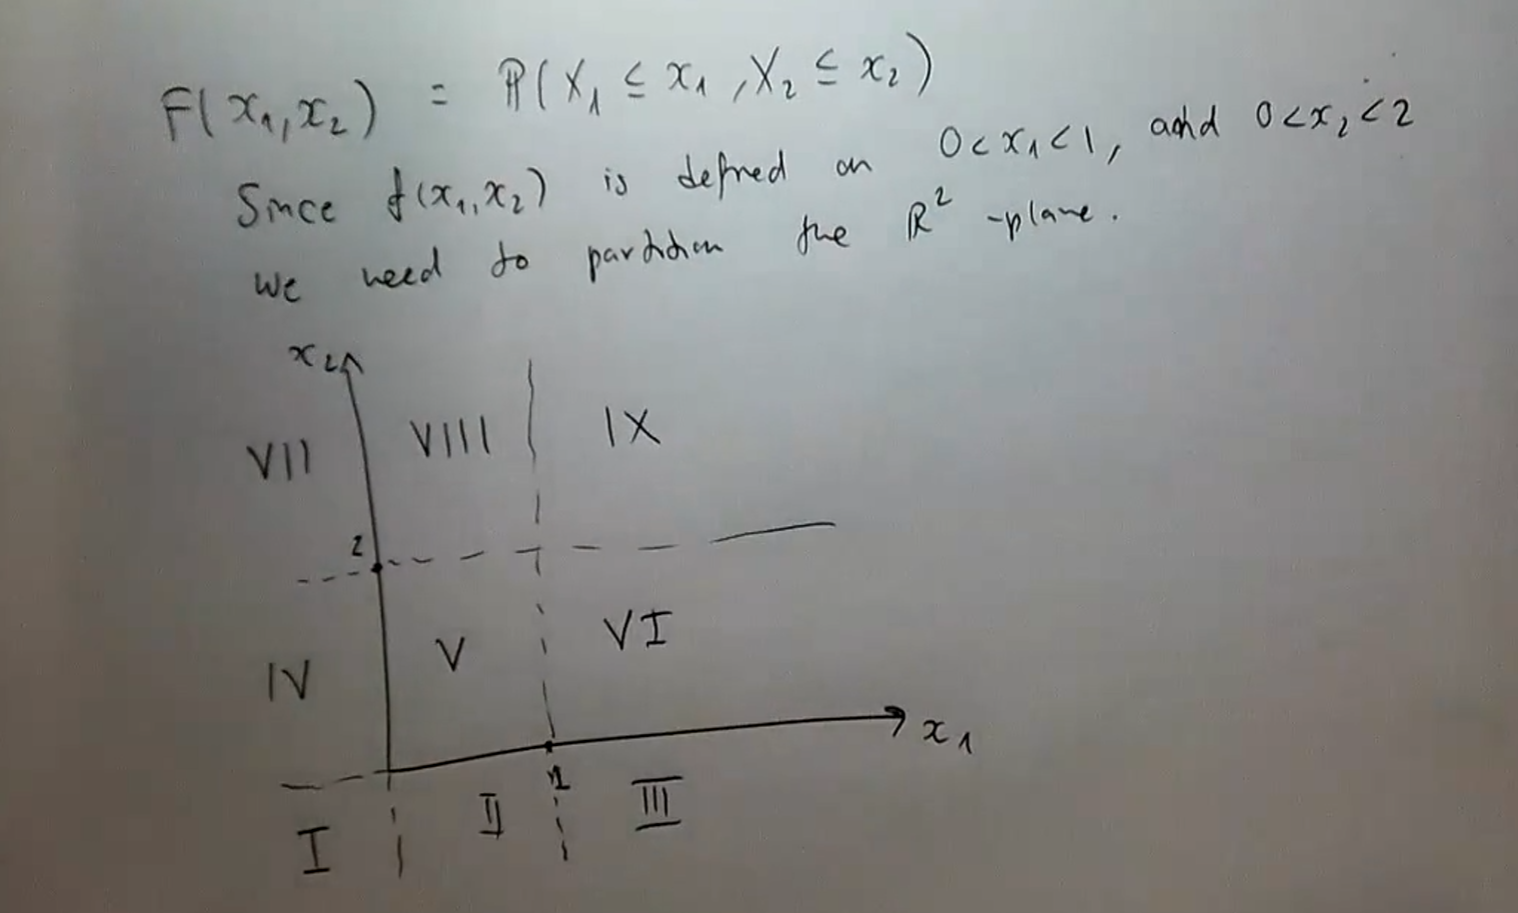 F(x₁,x₂) = ℙ(X₁ ≤ x₁, X₂ ≤ x₂)
Since f(x₁,x₂) is defined on 0<x₁<1, and 0<x₂<2
we need to partition the ℝ² -plane.
x₂
VII VIII IX
2
IV V VI
x₁
1
I II III